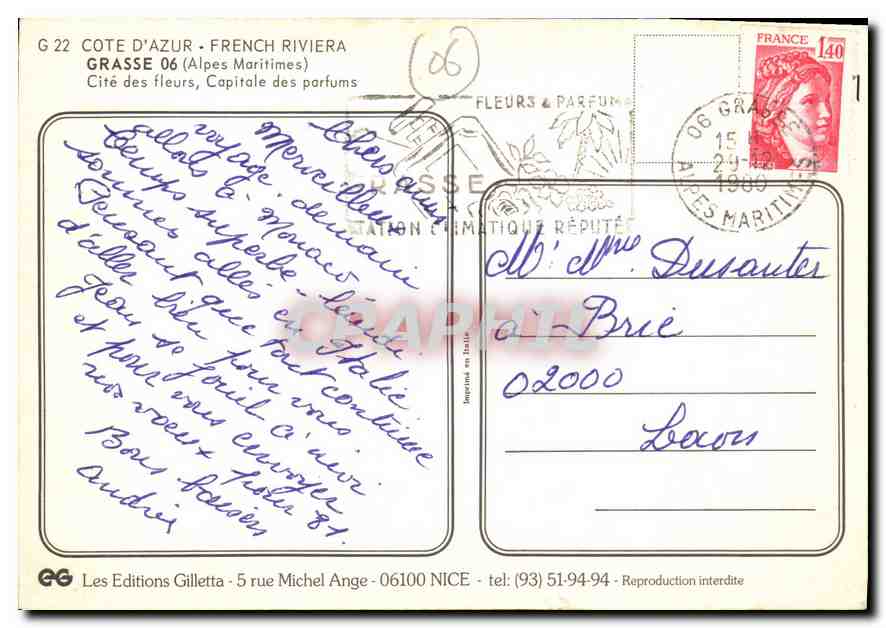 G 22 COTE D'AZUR - FRENCH RIVIERA
GRASSE 06 (Alpes Maritimes)
Cité des fleurs, Capitale des parfums
06
FLEURS & PARFUMS
GRASSE
STATION CLIMATIQUE RÉPUTÉE
FRANCE
1,40
06 GRASSE
15 H
29-12
1980
ALPES MARITIMES
Chers amis
Merveilleux
voyage. demain
allons à Monaco,
temps superbe. Lundi
sommes allés en Italie
Pensant que tout continue
d'aller bien pour vous.
Jean se joint à moi
et pour vous envoyer
nos voeux pour 81.
Bons baisers
Andrée
Mr Mme Dusauter
à Brie
02000
Laon
Imprimé en Italie
CPAPHIL
EG Les Editions Gilletta - 5 rue Michel Ange - 06100 NICE - tel: (93) 51-94-94 - Reproduction interdite